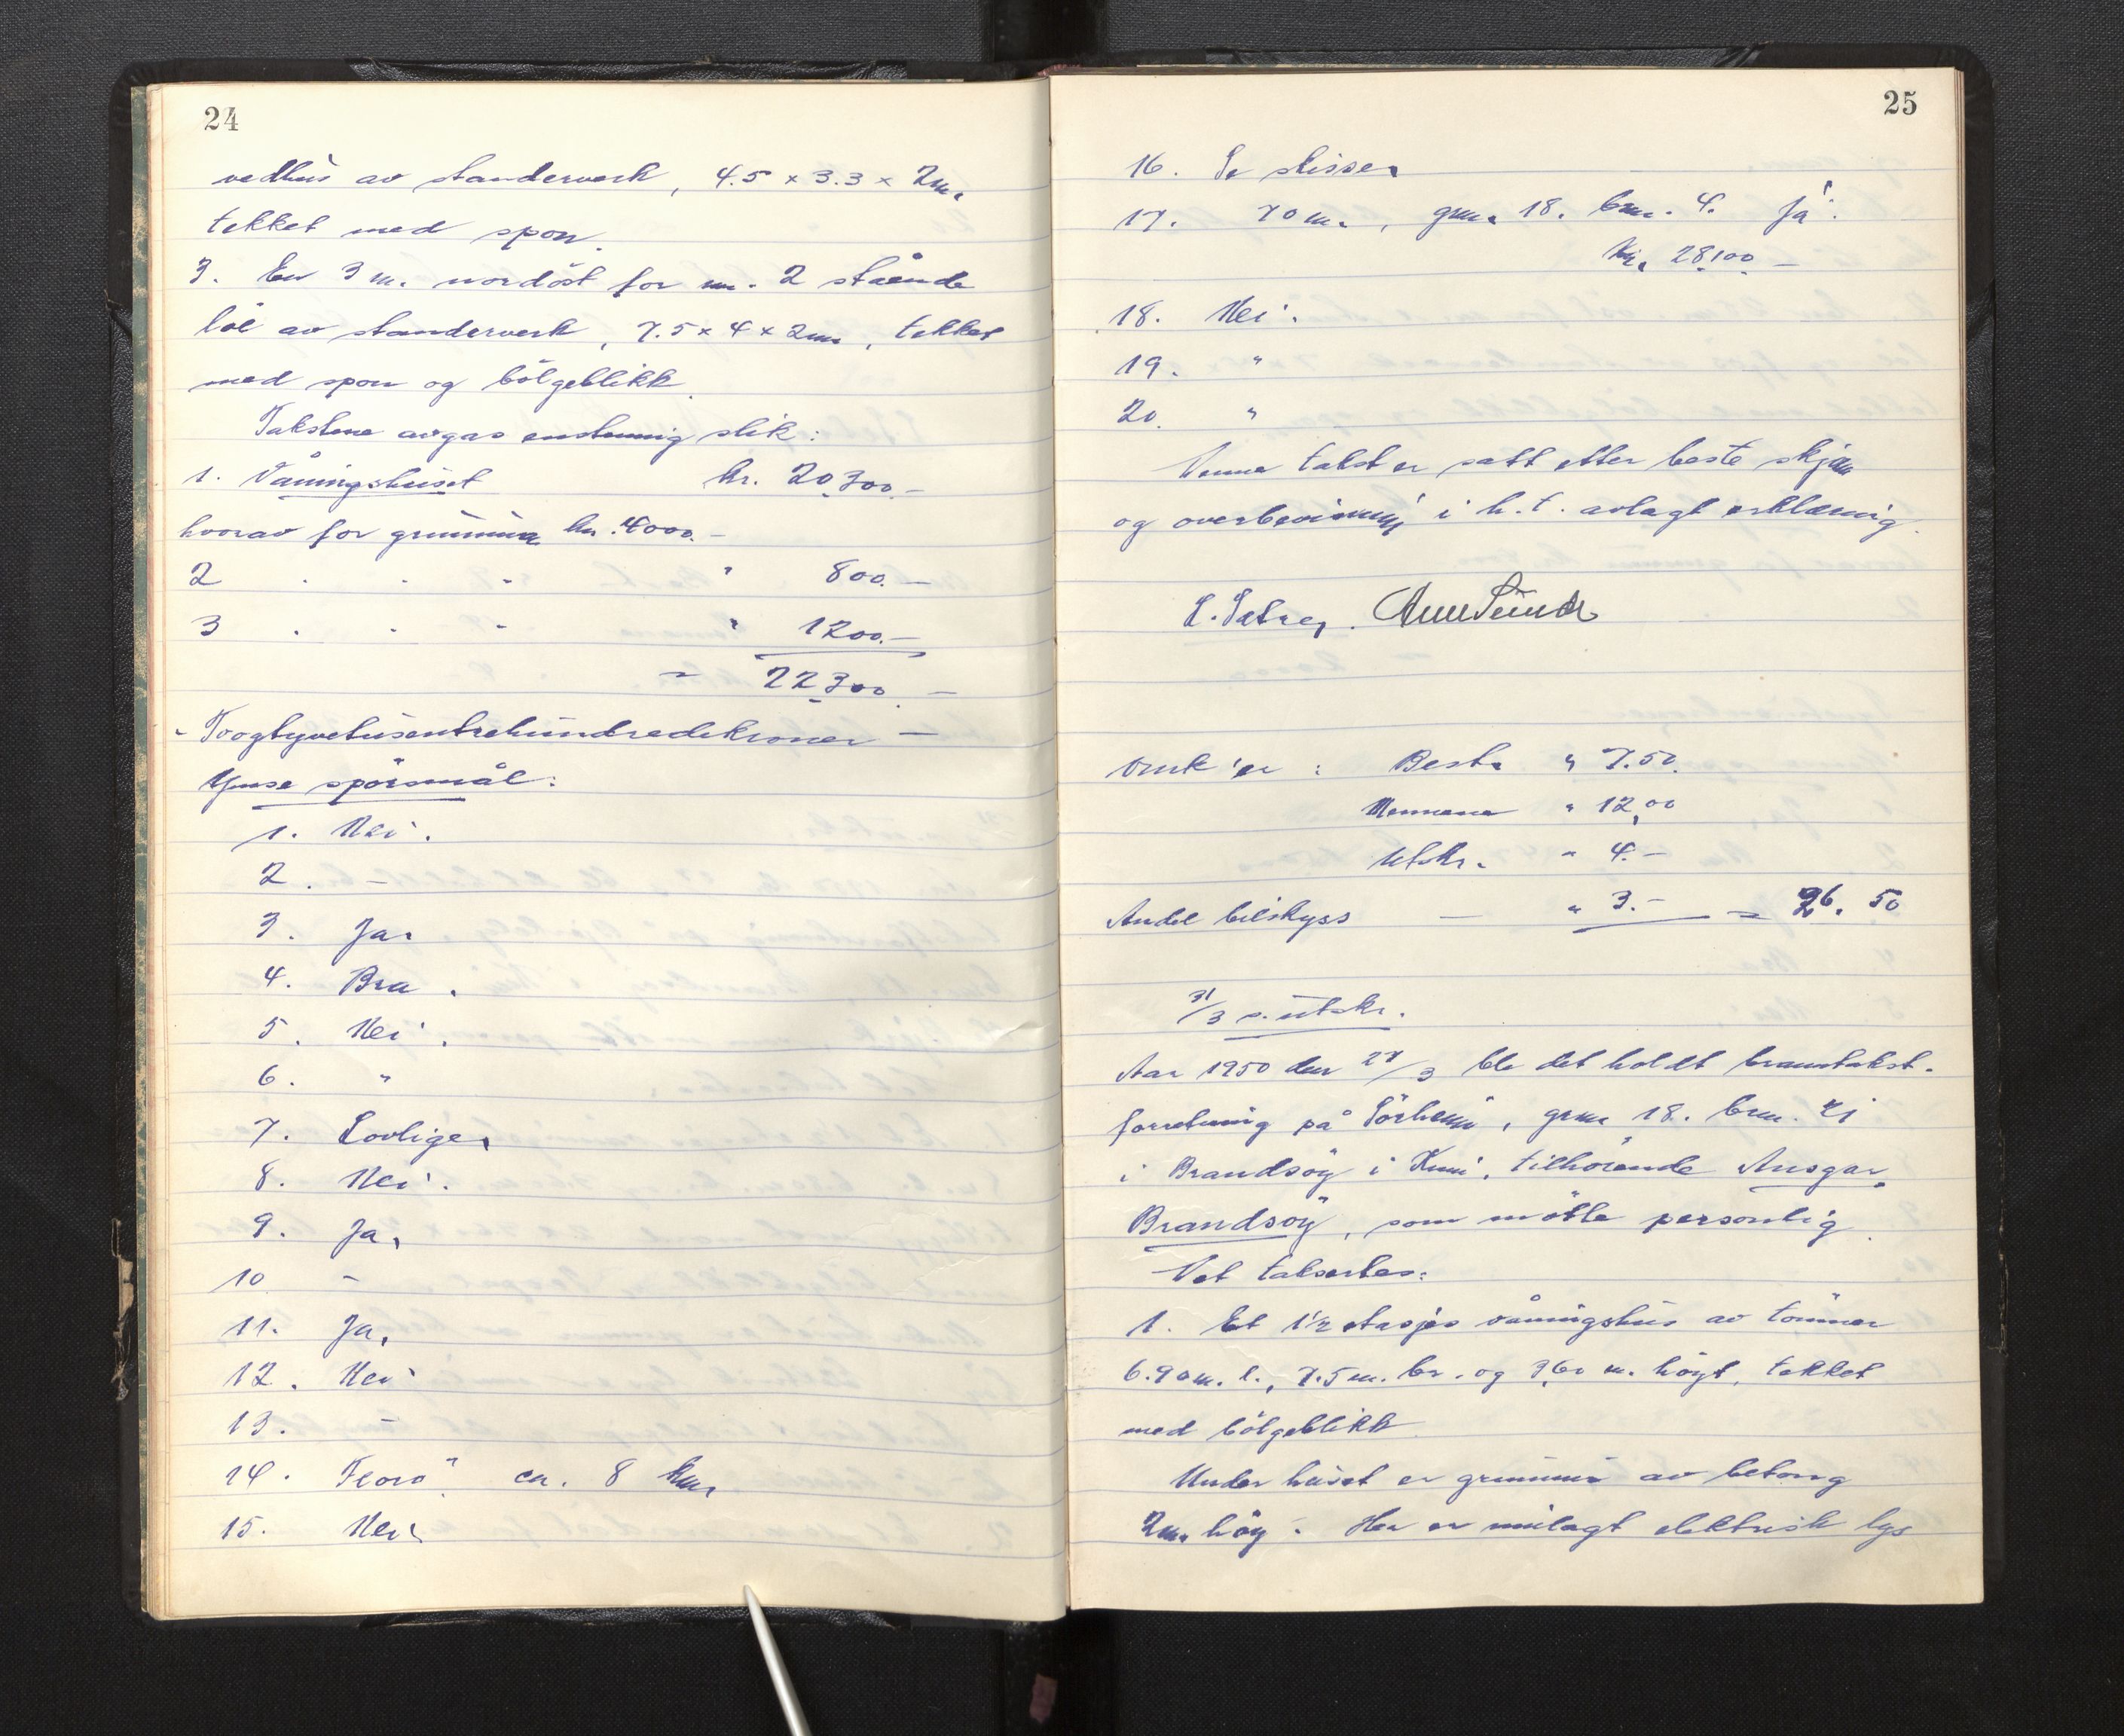 24
vedhus av standerverk, 4.5 x 3.3 x 2m.
tekket med spon.
3. En 3 m. nordöst for nr. 2 stående
löe av standerverk, 7.5 x 4 x 2m, tekket
med spon og bölgeblikk.
Takstene avgas enstemmig slik:
1. Våningshuset kr. 20300.-
hvorav for grunmur kr. 4000.-
2 " " " " 800.-
3 " " " " 1200.-
" 22300.-
- Toogtyvetusentrehundredekroner -
Ymse spörsmål:
1. Nei.
2. -
3. Ja.
4. Bra.
5. Nei.
6. "
7. Lovlige.
8. Nei.
9. Ja.
10 -
11. Ja.
12. Nei
13. -
14. Florö ca. 8 km.
15. Nei.
25
16. Se skisse.
17. 70 m., grn. 18. brn. 4. Ja.
Kr. 28100.-
18. Nei.
19. "
20. "
Denne takst er satt etter beste skjøn
og overbevisning i h.t. avlagt erklæring.
Omk'er: Best. " 7.50.
Mennene " 12,00
Utskr. " 4.-
Andel bilskyss - " 3.- = 26.50
31/3 s. utskr.
Aar 1950 den 27/3 ble det holdt branntakst-
forretning på Sörheim, grn. 18. brn.
i Brandsöy i Kinn, tilhörende Ansgar
Brandsöy, som mötte personlig.
Det taksertes:
1. Et 1½ etasjes våningshus av tömmer
6.90m. l., 7.5 m. br. og 3,60 m. höyt, tekket
med bölgeblikk.
Under huset er grunmur av betong
2m. höy. Her er innlagt elektrisk lys